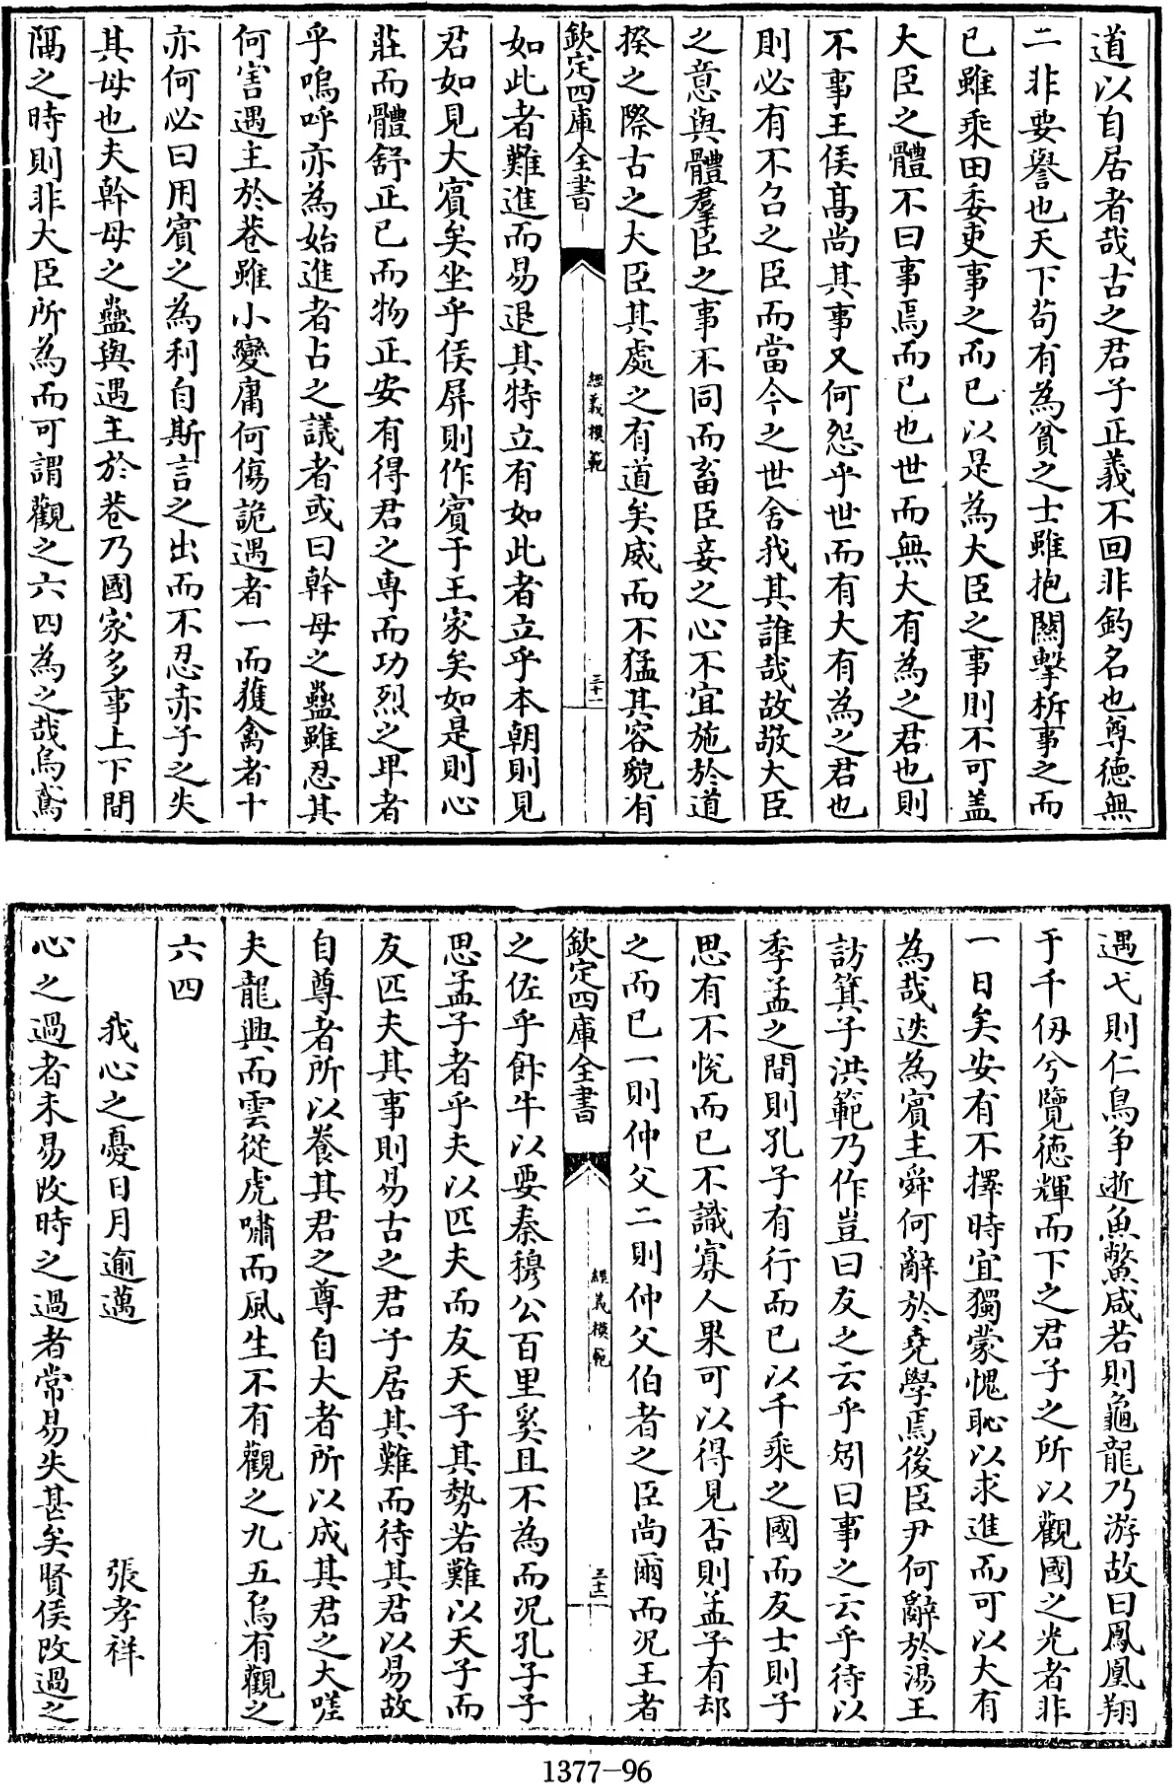 道以自居者哉古之君子正義不回非釣名也尊德無
二非要譽也天下苟有為貧之士雖抱關擊柝事之而
已雖乘田委吏事之而已以是為大臣之事則不可盖
大臣之體不曰事焉而已也世而無大有為之君也則
不事王侯髙尚其事又何怨乎世而有大有為之君也
則必有不召之臣而當今之世舍我其誰哉故敬大臣
之意與體羣臣之事不同而畜臣妾之心不宜施於道
揆之際古之大臣其處之有道矣威而不猛其容貌有
欽定四庫全書
經義模範
三十一
如此者難進而易退其特立有如此者立乎本朝則見
君如見大賓矣坐乎侯屏則作賓于王家矣如是則心
莊而體舒正已而物正安有得君之專而功烈之卑者
乎嗚呼亦為始進者占之議者或曰幹母之蠱雖忍其
何害遇主於巷雖小變庸何傷詭遇者一而獲禽者十
亦何必曰用賓之為利自斯言之出而不忍赤子之失
其母也夫幹母之蠱與遇主於巷乃國家多事上下間
隔之時則非大臣所為而可謂觀之六四為之哉烏鳶
遇弋則仁鳥爭逝魚鱉咸若則龜龍乃游故曰鳳凰翔
于千仞兮覽德輝而下之君子之所以觀國之光者非
一日矣安有不擇時宜獨蒙愧恥以求進而可以大有
為哉迭為賓主舜何辭於堯學焉後臣尹何辭於湯王
訪箕子洪範乃作豈曰友之云乎矧曰事之云乎待以
季孟之間則孔子有行而已以千乘之國而友士則子
思有不悅而已不識寡人果可以得見否則孟子有却
之而已一則仲父二則仲父伯者之臣尚爾而况王者
欽定四庫全書
經義模範
三十二
之佐乎飯牛以要秦穆公百里奚且不為而况孔子子
思孟子者乎夫以匹夫而友天子其勢若難以天子而
友匹夫其事則易古之君子居其難而待其君以易故
自尊者所以養其君之尊自大者所以成其君之大嗟
夫龍興而雲從虎嘯而風生不有觀之九五烏有觀之
六四
我心之憂日月逾邁　張孝祥
心之過者未易改時之過者常易失甚矣賢侯改過之
1377-96